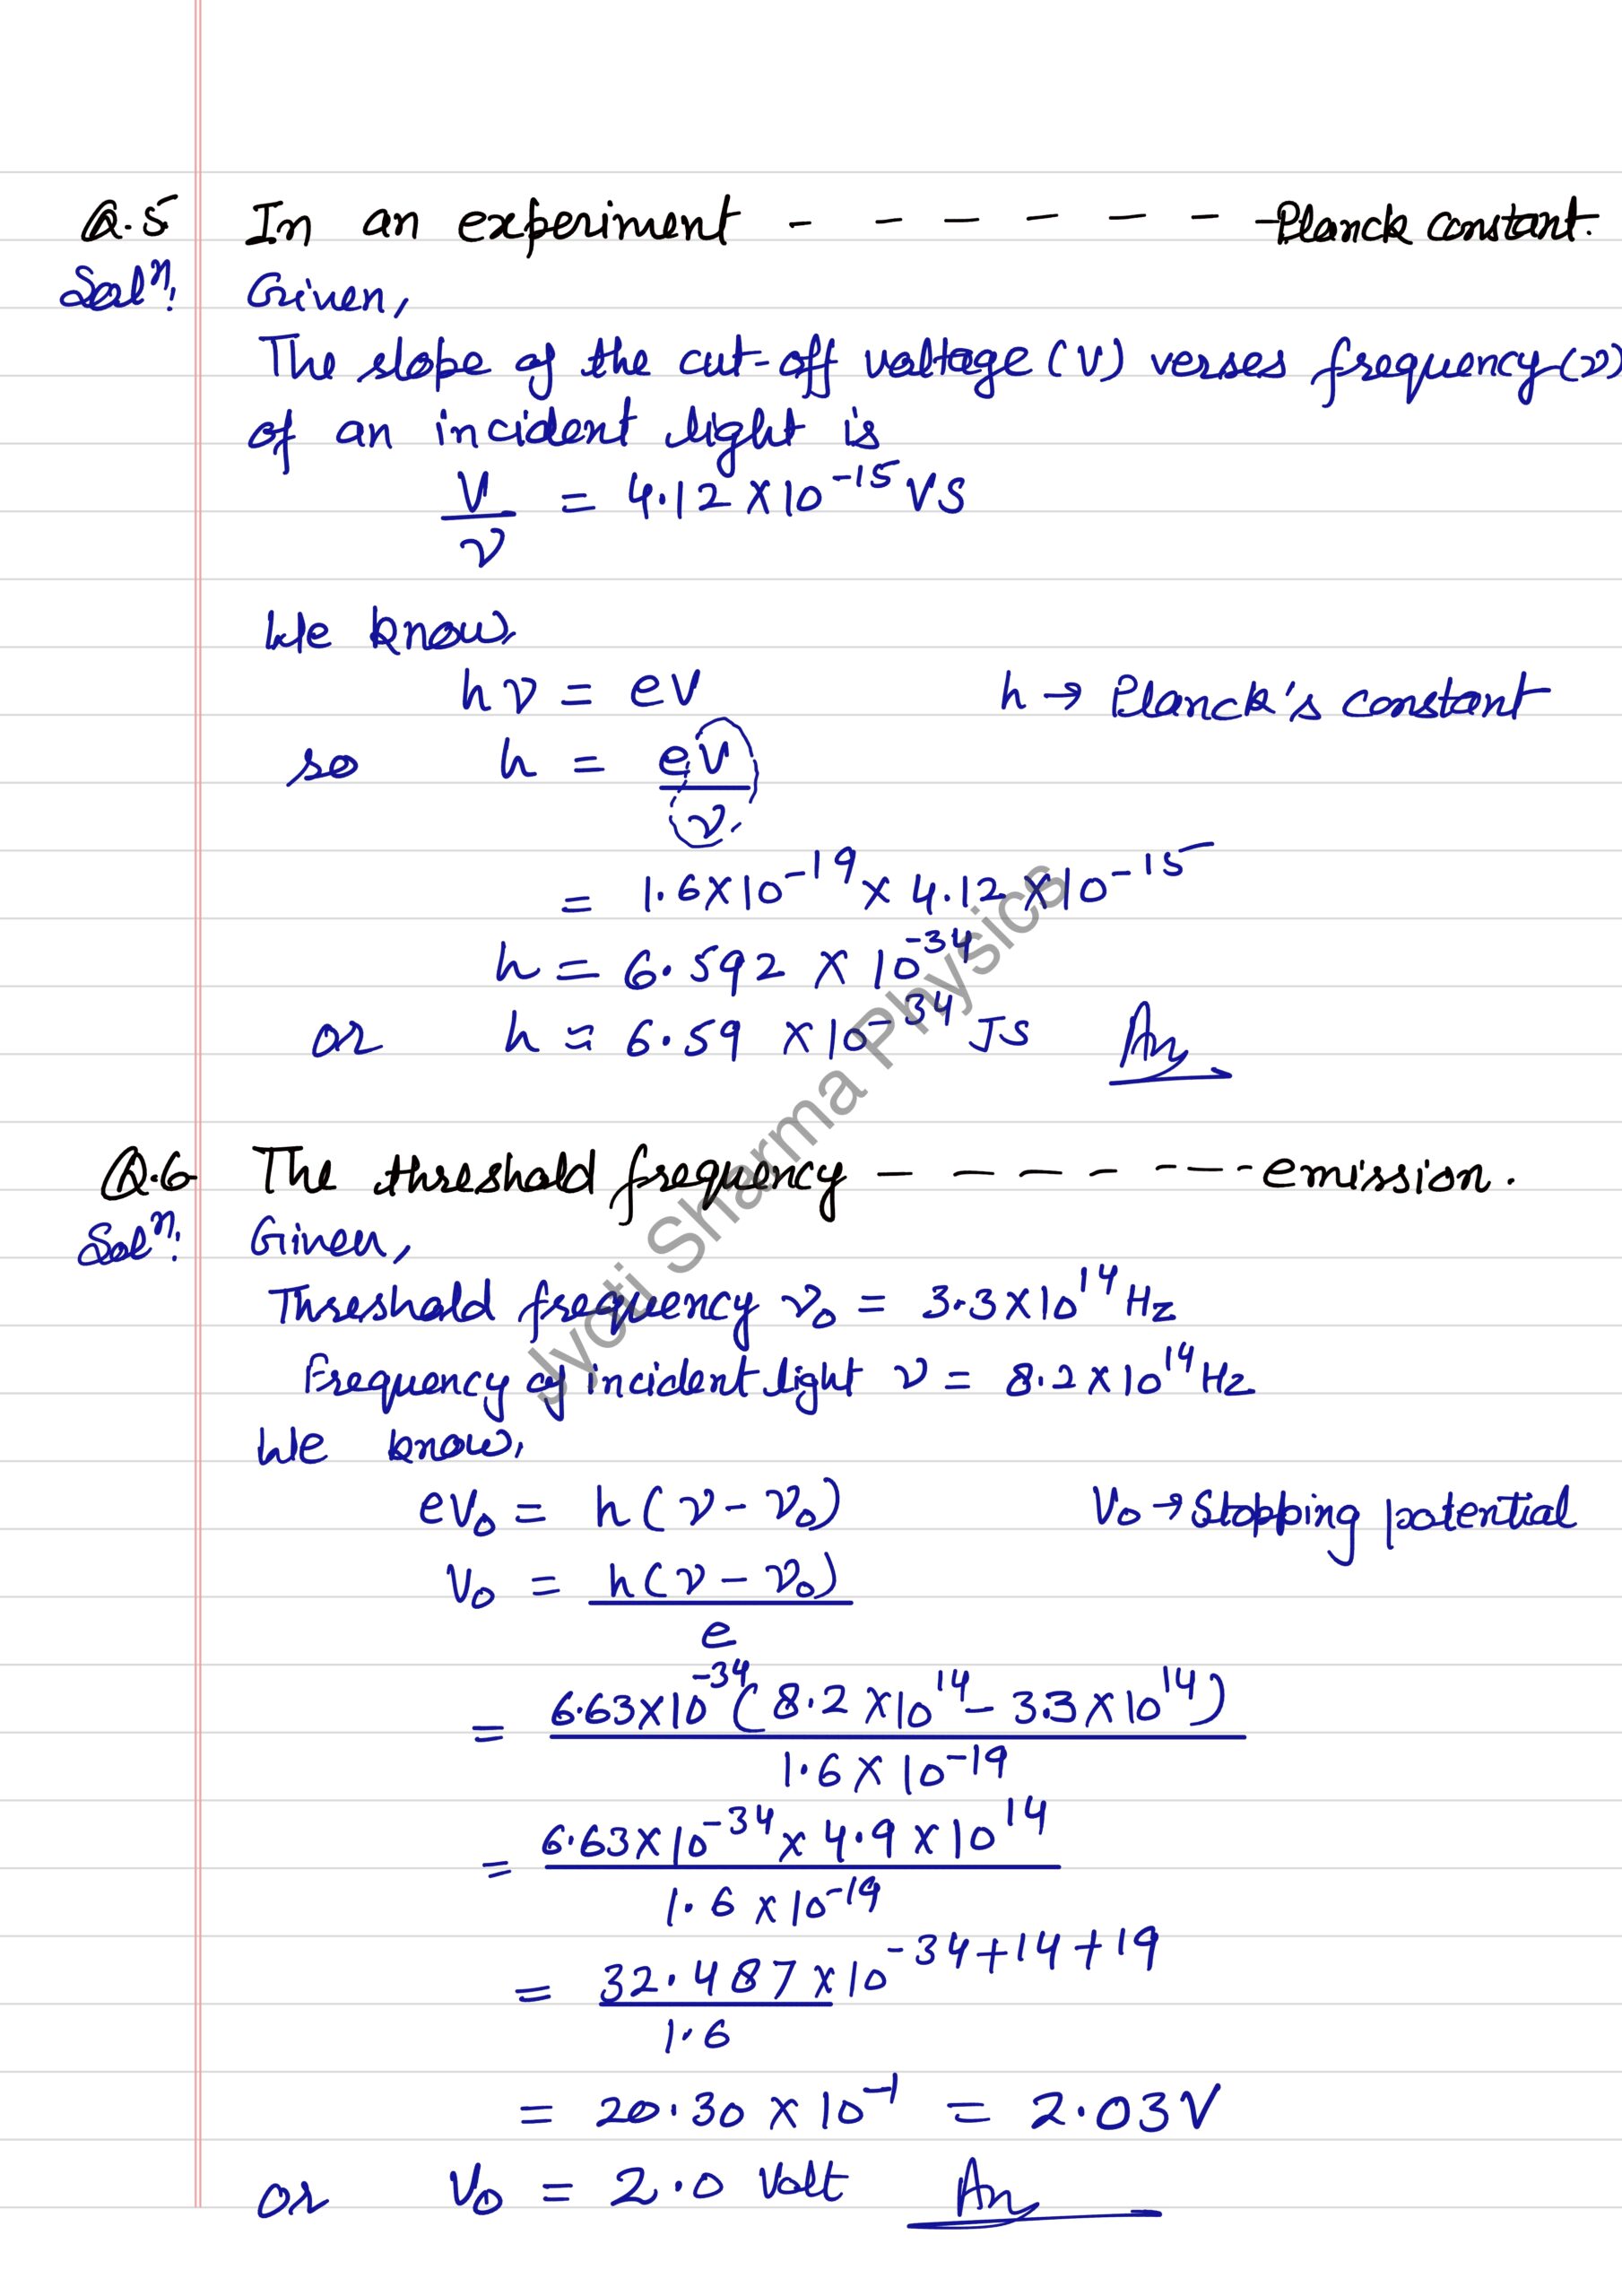 Q.5 In an experiment - - - - - - - Planck constant.
Solⁿ: Given,
The slope of the cut-off voltage (V) verses frequency (ν)
of an incident light is
V/ν = 4.12 × 10⁻¹⁵ VS
We know,
hν = eV h → Planck's constant
so h = eV/ν
= 1.6 × 10⁻¹⁹ × 4.12 × 10⁻¹⁵
h = 6.592 × 10⁻³⁴
or h ≈ 6.59 × 10⁻³⁴ JS Ans
Q.6 The threshold frequency - - - - - - - emission.
Solⁿ: Given,
Threshold frequency ν₀ = 3.3 × 10¹⁴ Hz
Frequency of incident light ν = 8.2 × 10¹⁴ Hz
We know,
eV₀ = h(ν - ν₀) V₀ → Stopping potential
V₀ = h(ν - ν₀)/e
= 6.63 × 10⁻³⁴ (8.2 × 10¹⁴ - 3.3 × 10¹⁴)/1.6 × 10⁻¹⁹
= 6.63 × 10⁻³⁴ × 4.9 × 10¹⁴/1.6 × 10⁻¹⁹
= 32.487 × 10⁻³⁴⁺¹⁴⁺¹⁹/1.6
= 20.30 × 10⁻¹ = 2.03 V
or V₀ = 2.0 Volt Ans
Jyoti Sharma Physics